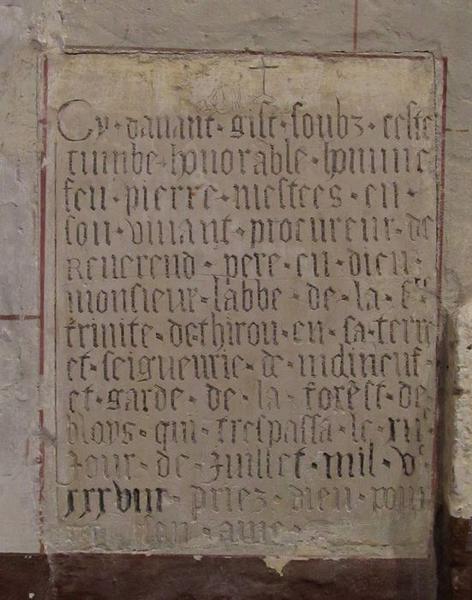 Cy · davant · gist · soubz · ceste
tumbe · honorable · homme
feu · pierre · mestees · en ·
son · vivant · procureur · de
Reverend · pere · en · dieu ·
monsieur · labbe · de · la · ste
trinite · de · thirou · en · sa · terre
et · seigneurie · de
et · garde · de · la · forest · de
bloys · qui · trespassa · le · xiie
Jour · de · Juillet · mil · vc
xxxviii · priez · dieu · pour
son · ame ·